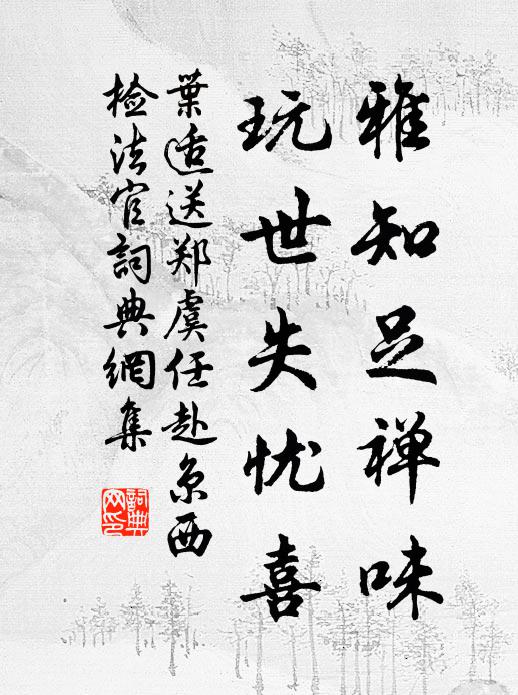 雅知足禅味
玩世失忧喜
葉适送郑虞任赴京西
检法官詞典網集
詞典网印